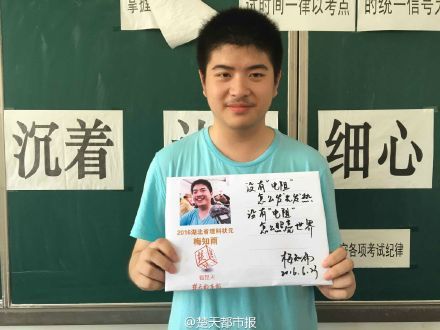 掌握
试时间一律以考点
的统一信号为
沉着
细心
没有“电阻”
怎么发光发热
没有“电阻”
怎么照亮世界
2016湖北省理科状元
梅知雨
梅知雨
2016.6.23
楚天都市报
容各项考试纪律
@楚天都市报